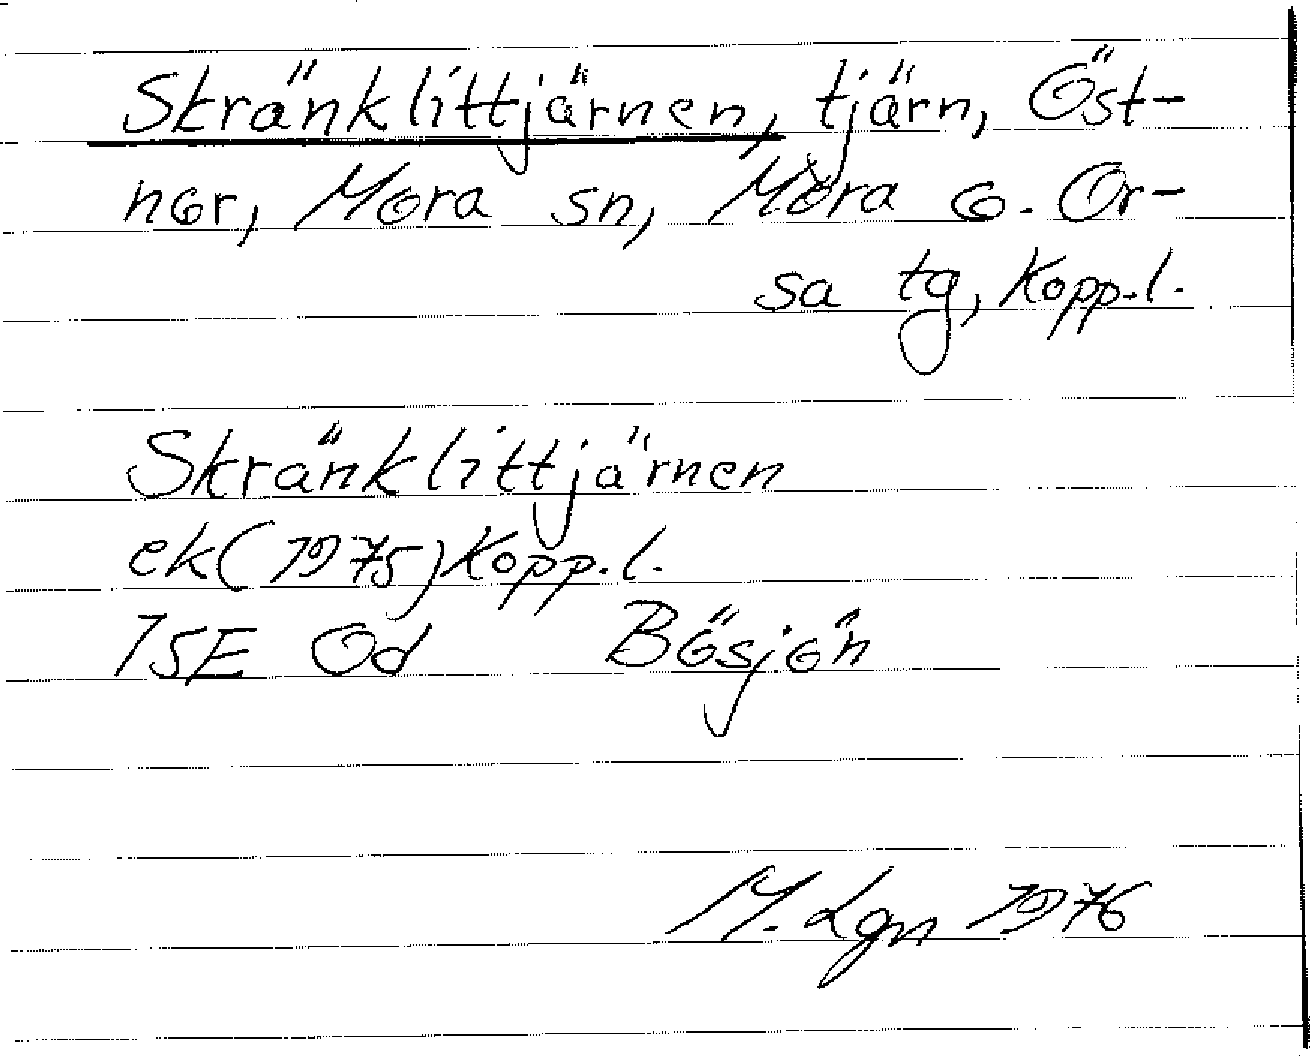 Skränklittjärnen, tjärn, Öst-
nor, Mora sn, Mora o. Or-
sa tg, Kopp.l.
Skränklittjärnen
ek(1975)Kopp.l.
15E Od Bösjön
M. Lgn 1976